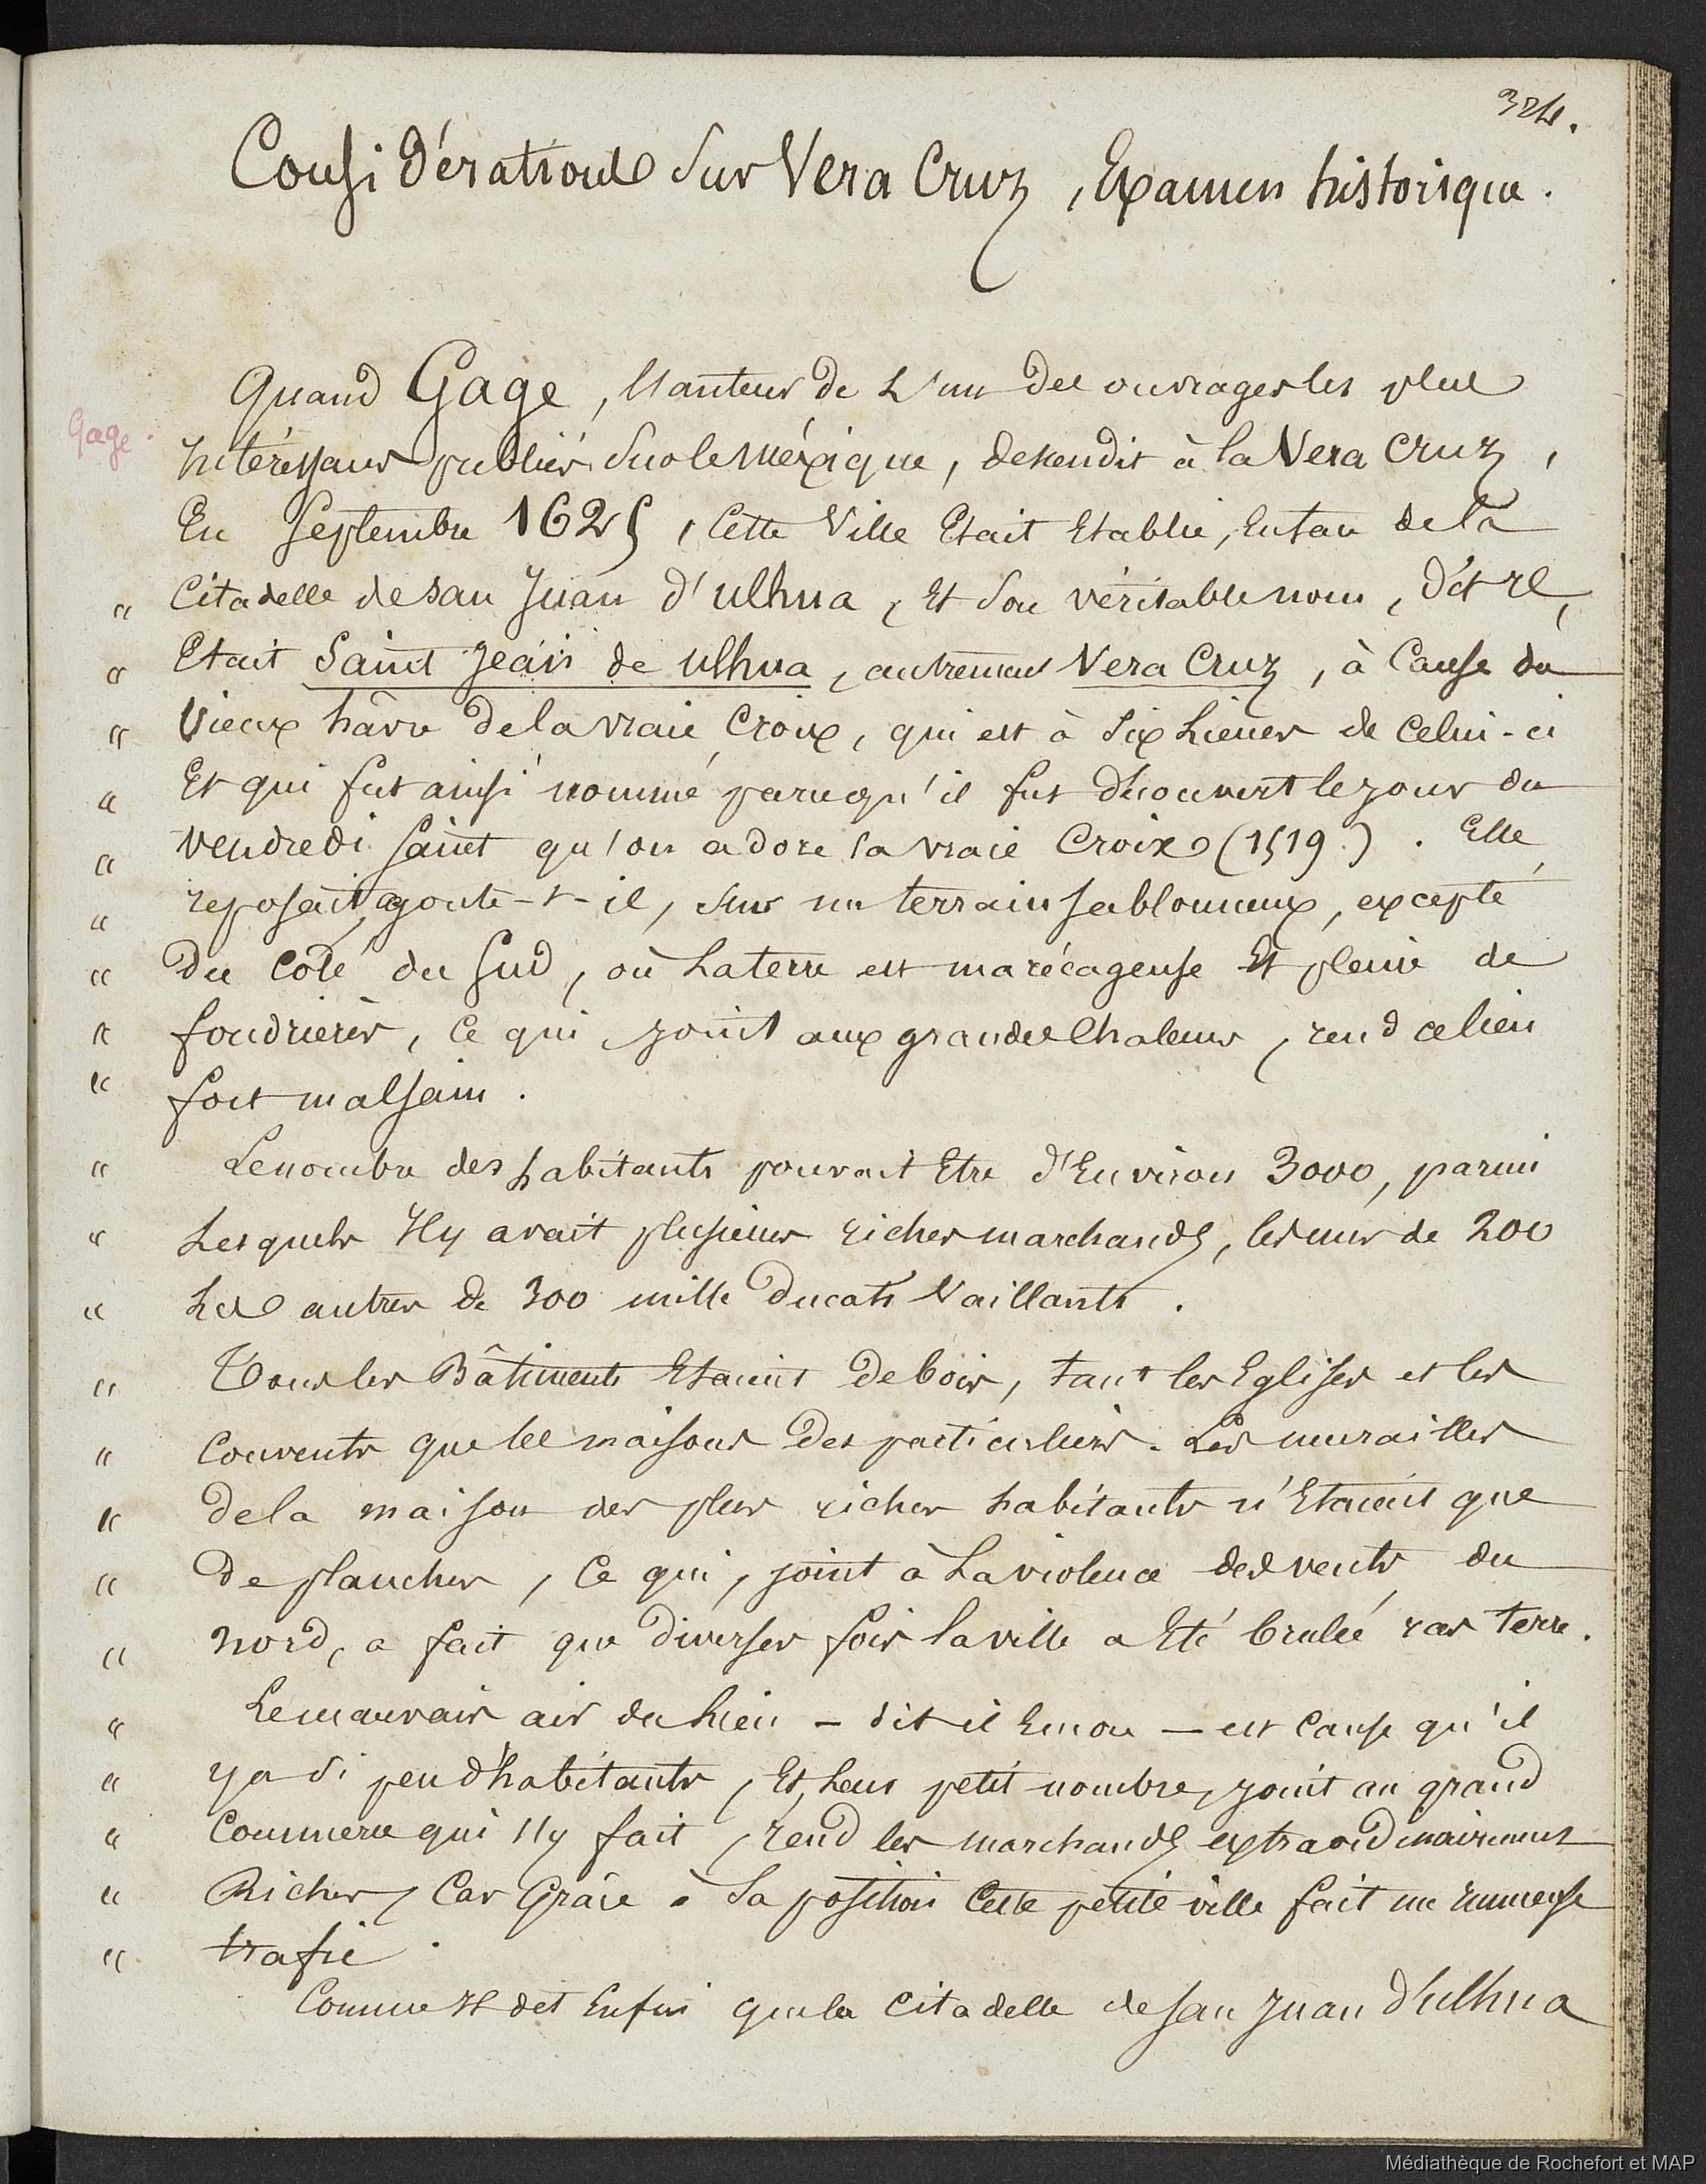 324.
Considérations sur Vera Cruz, Examen historique.
Quand Gage, l'auteur de L'un des ouvrages les plus
Gage.
Intéressans publiés sur le Méxique, descendit à la Vera Cruz,
En Septembre 1625, Cette Ville Etait Etablie, en face de la
" Citadelle de san Juan d'ulhua, Et Son véritable nom, dit-il,
" Etait Saint Jean de ulhua, autrement Vera Cruz, à Cause du
" Vieux hâvre de la vraie Croix, qui est à Six Lieues de Celui-ci
" Et qui fut ainsi nommé parcequ'il fut découvert le jour du
" vendredi Saint qu'on adore la vraie Croix (1519). Elle
" reposait, ajoute-t-il, sur un terrain Sablonneux, excepté
" du Coté du Sud, où La terre est marécageuse Et pleine de
" fondrières, Ce qui, joint aux grandes Chaleurs, rend ce lieu
" fort malsain.
" Le nombre des habitants pouvait Etre d'Environ 3000, parmi
" Lesquels Il y avait plusieurs riches marchands, les uns de 200
" Les autres de 300 mille Ducats Vaillants.
" Tous les Bâtiments Etaient de bois, tant les Eglises et les
" Couvents que les maisons des particuliers. Les murailles
" de la maison des plus riches habitants n'Etaient que
" De planches, Ce qui, joint à La violence des vents du
" nord, a fait que diverses fois la ville a Eté brulée ras terre.
" Le mauvais air du Lieu – dit il – est Cause qu'il
" y a si peu d'habitants, Et Leur petit nombre, joint au grand
" Commerce qui s'y fait, rend les marchands extraordinairement
" Riches, Car Grâce à Sa position Cette petite ville fait un Immense
" trafic.
Comme Il dit Enfin que la Citadelle de San Juan d'ulhua
Médiathèque de Rochefort et MAP